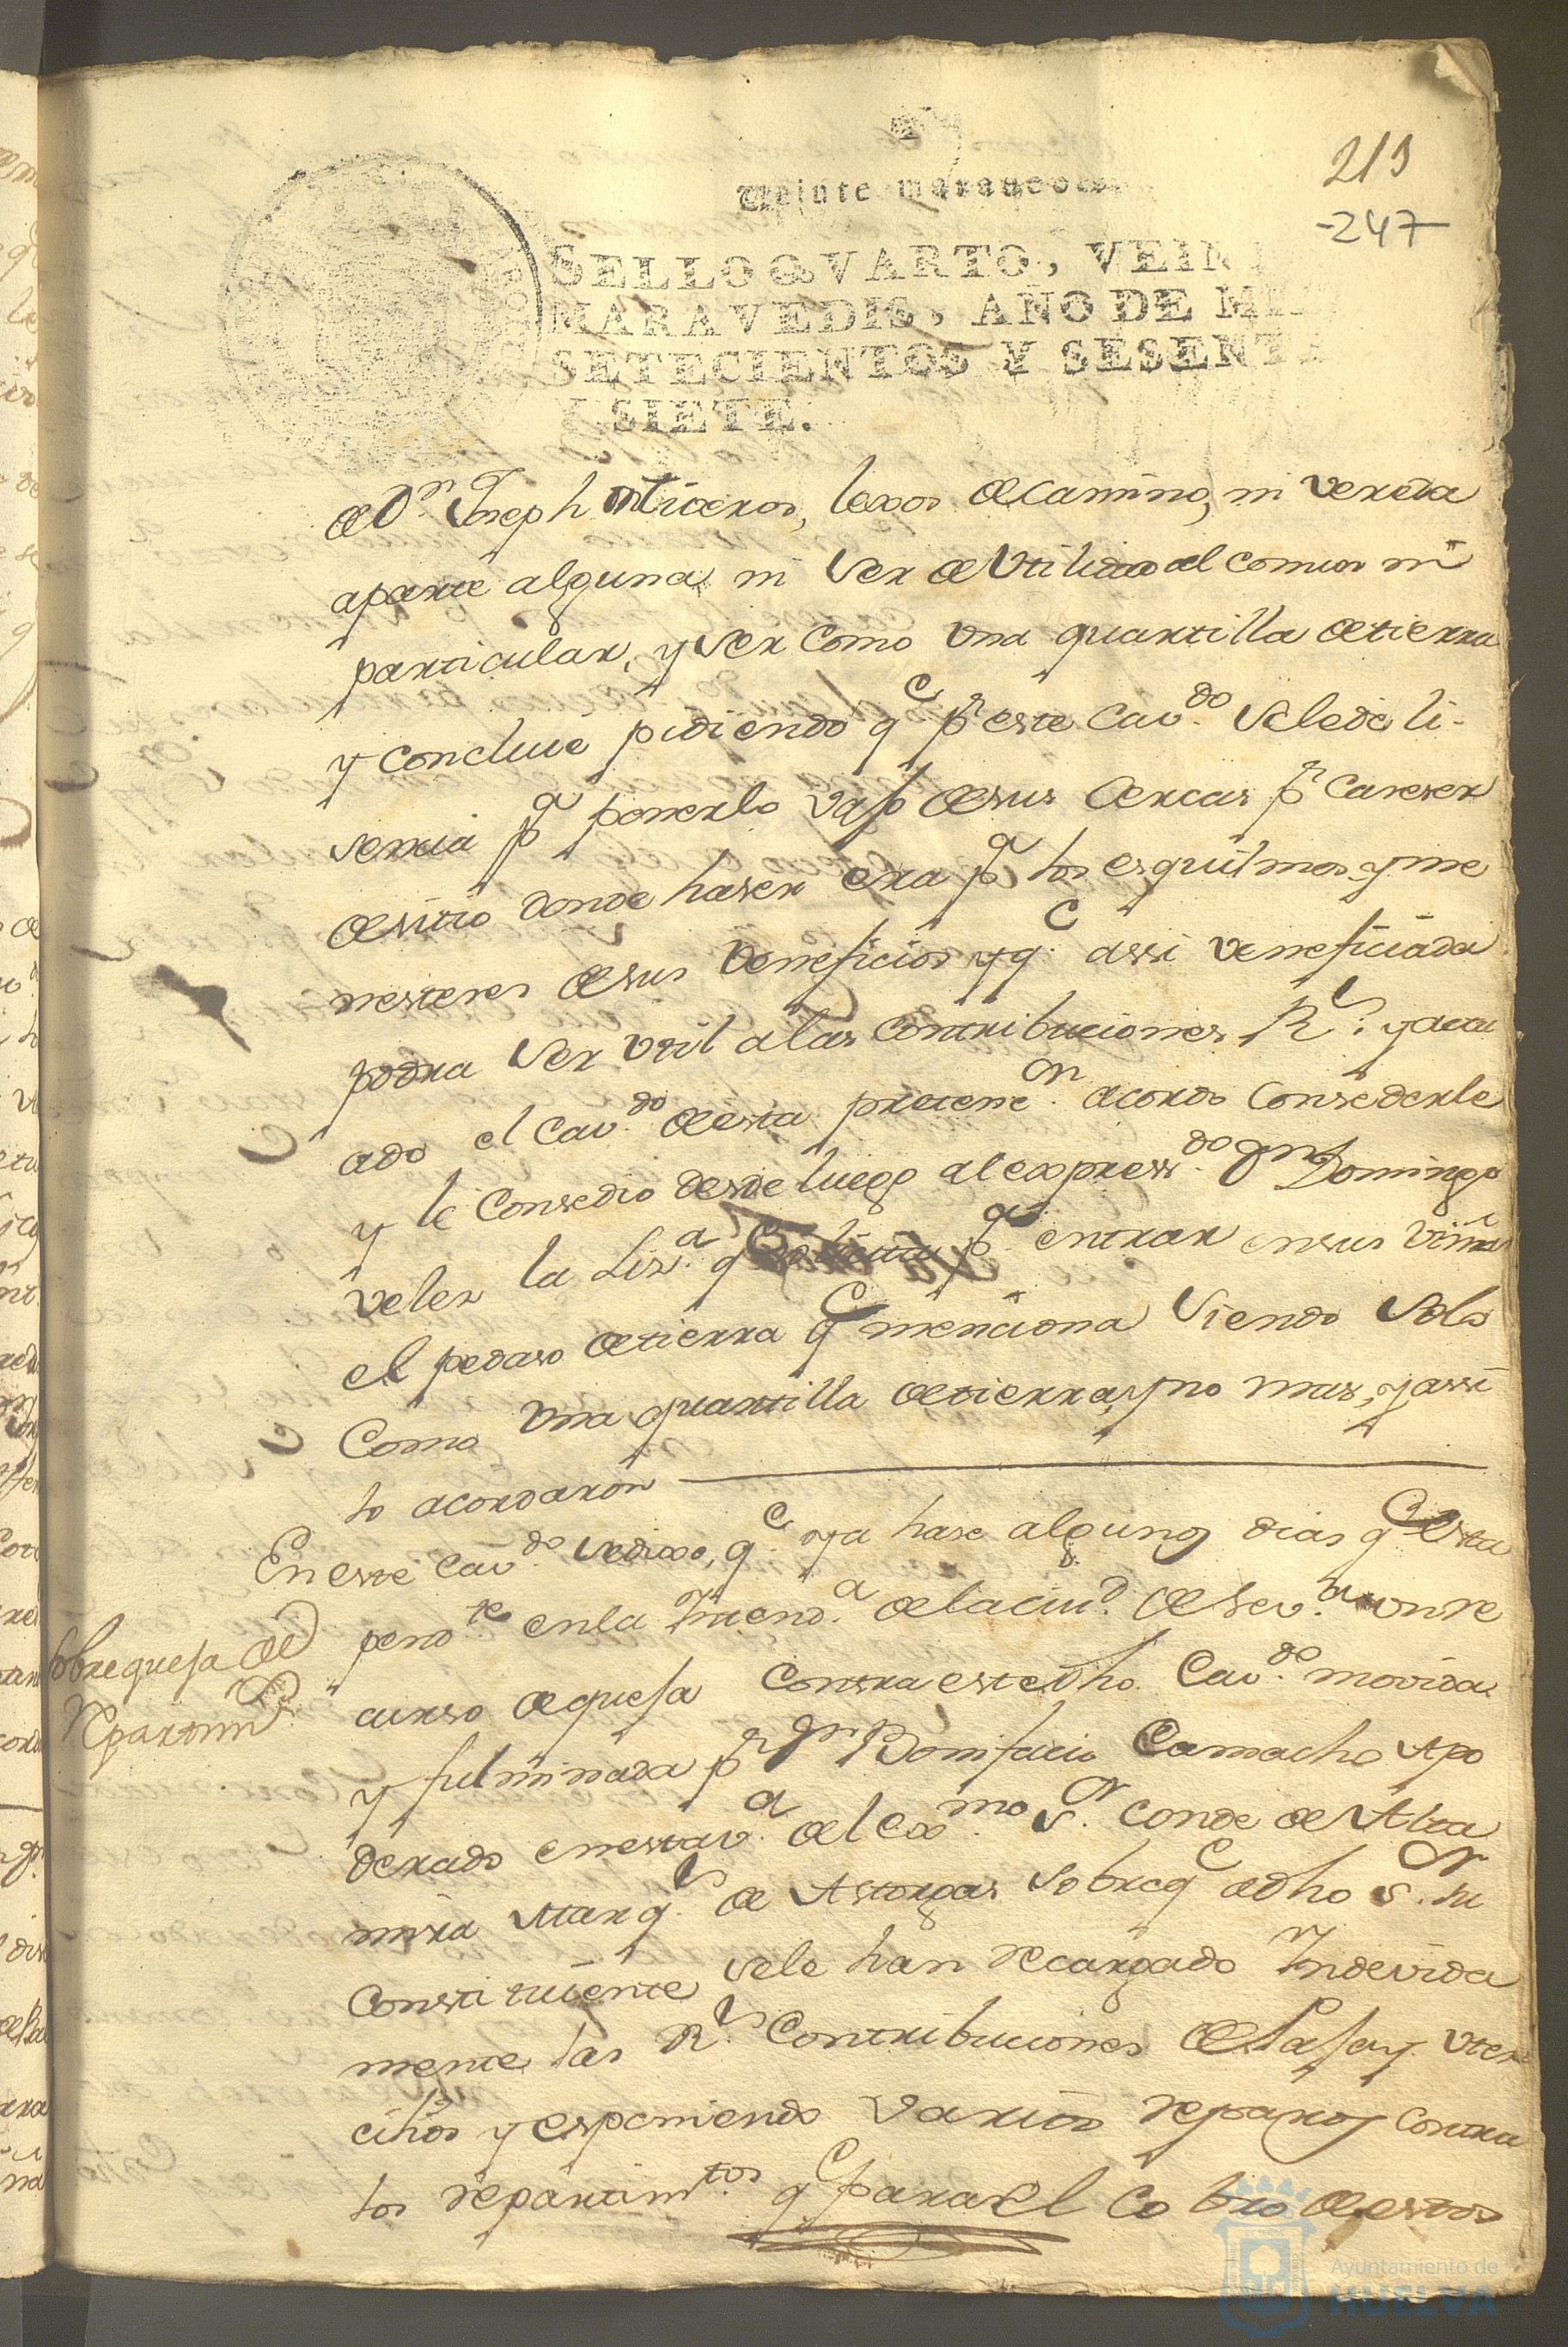 219
-247-
Veinte maravedis
SELLO QVARTO, VEIN
MARAVEDIS, AÑO DE MI
SETECIENTOS Y SESENT
Y SIETE.
de Dn Joseph lexos de Camino, ni vereda
aparte alguna ni ser de Utilidad al comun ni
particular, y ser como Una quartilla de tierra
y concluie pidiendo qe pr este Cavdo. se le de li-
sensia pa ponerlo vajo de sus Cercas pr Careser
de sitio donde haser era pa los esquilmos y me
nesteres de sus veneficios y qe. assi veneficiada
podra ser Util a las Contribuciones Rs. y actu
ado el Cavdo. de esta pretencn. acordo Consederle
y le Consedio desde luego al expressdo. Dn Domingo
veler la Lisa. q pa entrar en sus viñas
el pedaso de tierra qe menciona siendo solo
Como Una quartilla de tierra, y no mas, y assi
lo acordaron
En este Cavdo. se dixo, qe. ya hase algunos dias qe esta
pendte. en la Intenda. de la ciud. de Seva. un re
Sobre quexa de
Repartimtos.
curso de quexa contra este dho. Cavdo. movida
y fulminada pr Dn Bonifacio Camacho Apo
derado en esta va. del Exmo. Sr. Conde de Alta
mira Marqs. de Astorga sobre qe a dho Sr. su
Constituiente se le han recargado Indevida
mente las Rs. Contribuciones de Paja y Uten
cilios y esponiendo varios reparos contra
los repartimtos. qe para el Cobro de estos
Ayuntamiento de
HUELVA